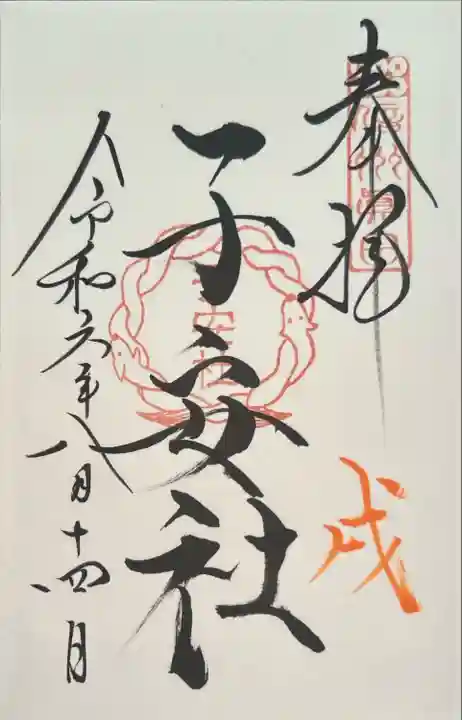 奉拝
戌
子安社
子安社
令和六年八月十四日